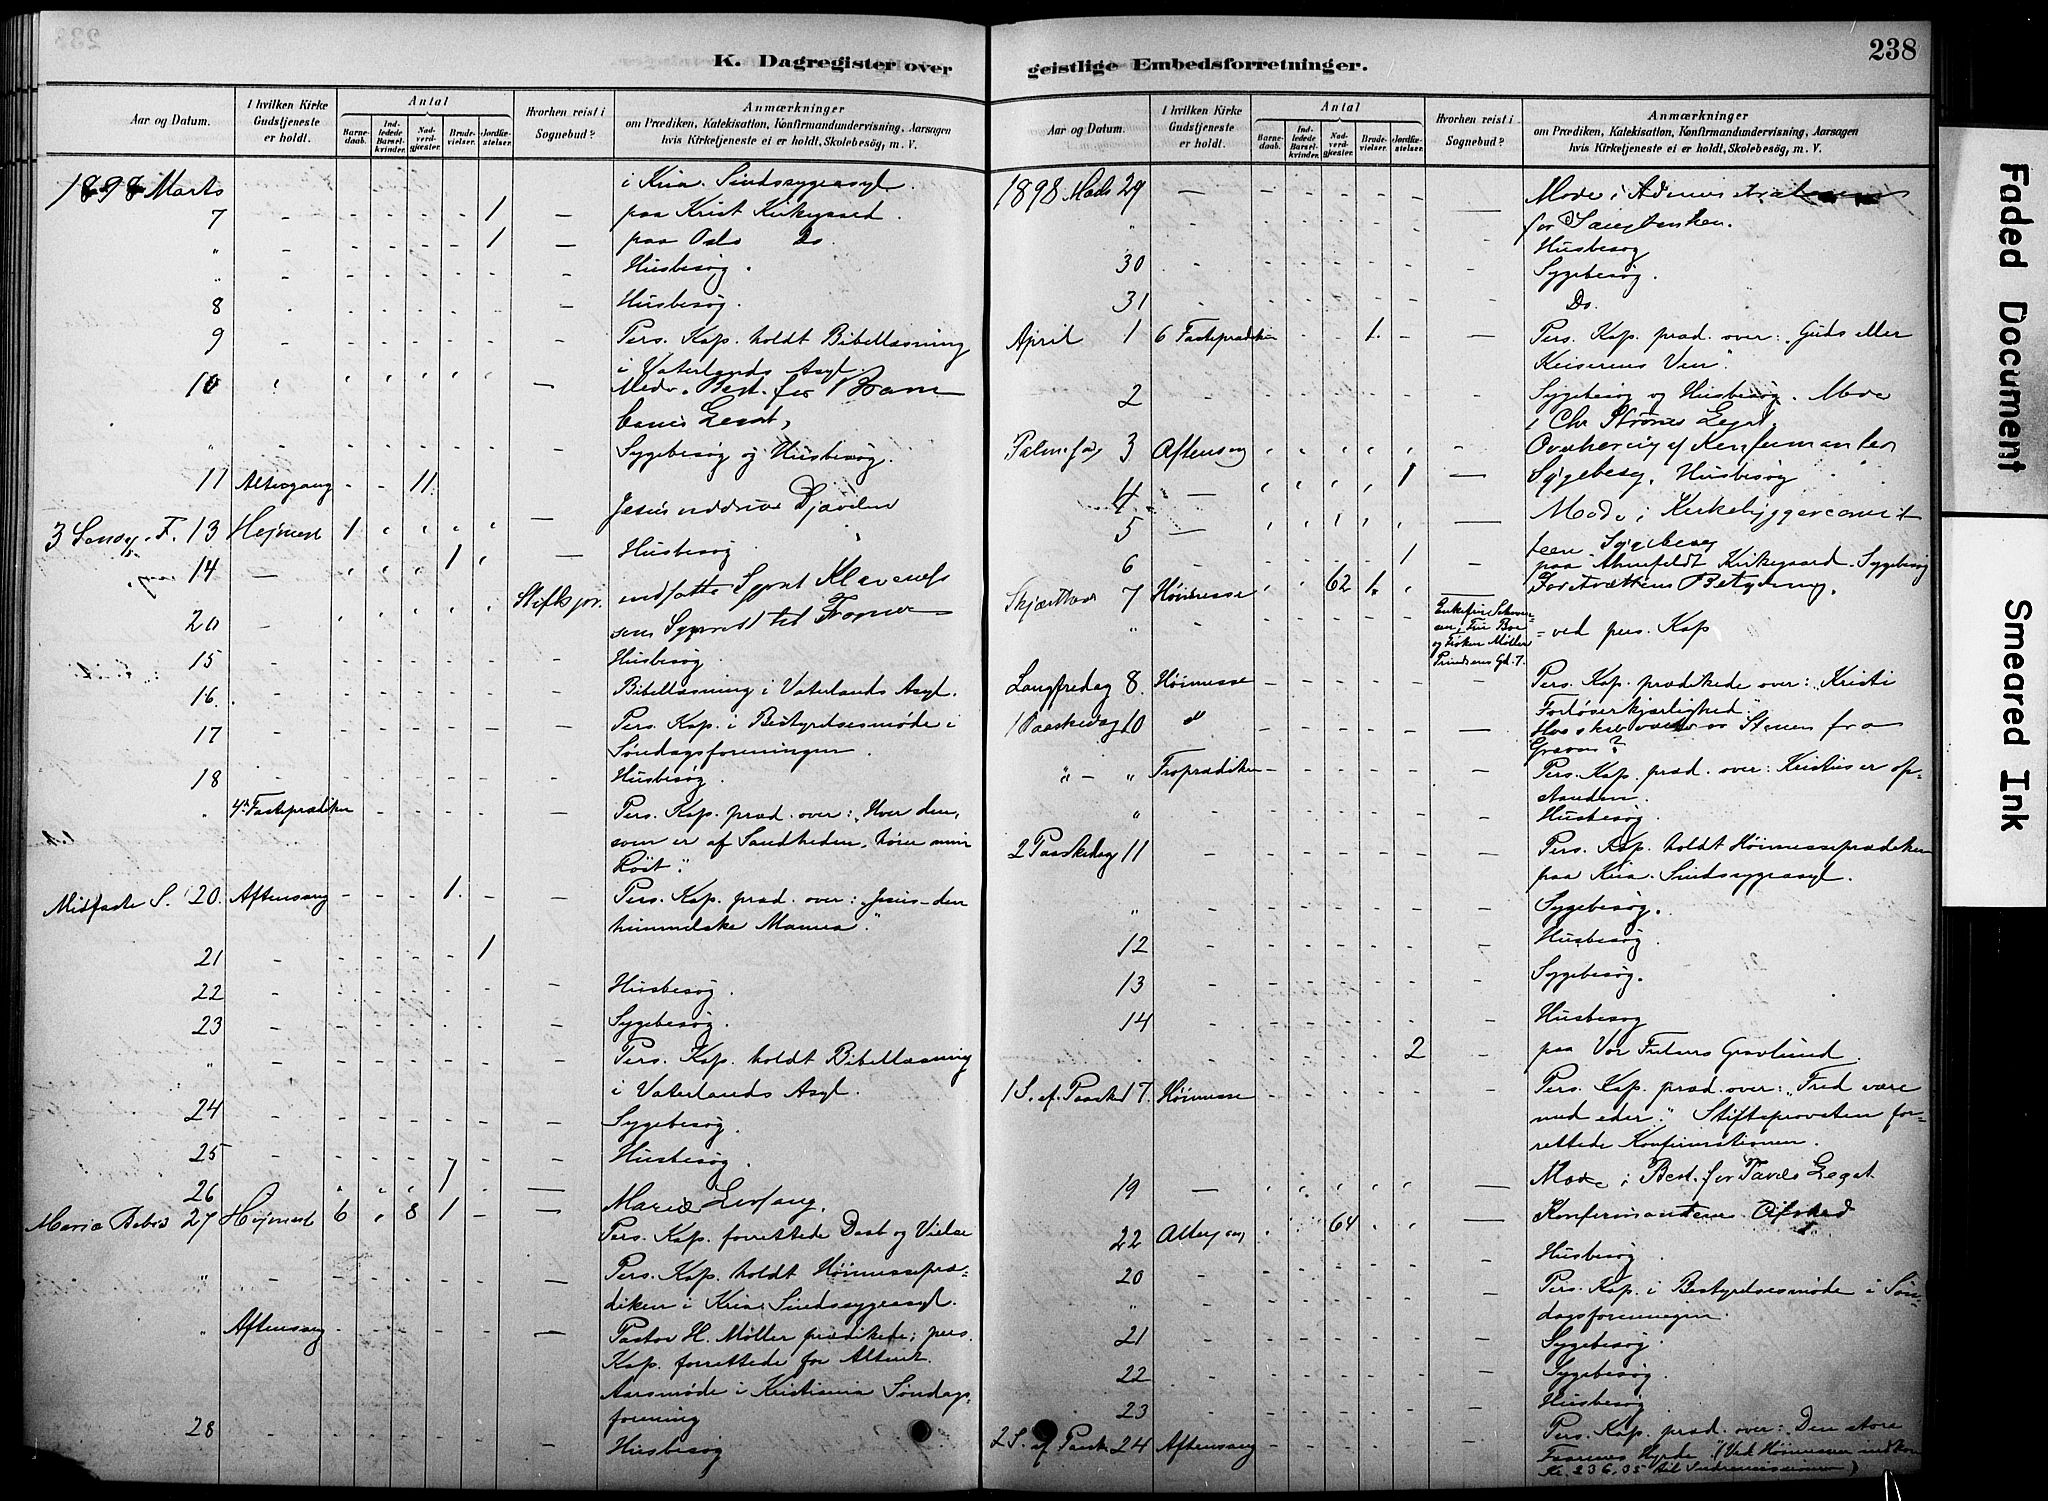 238
K. Dagregister over
geistlige Embedsforretninger.
Aar og Datum.
I hvilken Kirke Gudstjeneste er holdt.
Antal
Barnedaab.
Indledede Barselkvinder.
Nadverdgjæster.
Brudevielser.
Jordfæstelser.
Hvorhen reist i Sognebud?
Anmærkninger
om Prædiken, Katekisation, Konfirmandundervisning, Aarsagen
hvis Kirketjeneste ei er holdt, Skolebesøg, m. V.
1898 Marts
i Kria. Sindssygeasyl.
7 - - - - - 1 — paa Krist Kirkegaard.
" - - - - - 1 — paa Oslo Do.
" Husbesøg.
8 Husbesøg.
9 Pers. Kap. holdt Bibellæsning
i Vaterlands Asyl.
10 — Best. for
Legat,
" Sygebesøg og Husbesøg.
11 Altergang - - 11
Jesus uddriver Djævelen
3 Sondg. F. 13 Hojmess 1 —
14 — 1 — Husbesøg
20 — Stiftspr. indsatte Sgprst Klaveness
som Sgprest til Frogner
15 Husbesøg.
16. Bibellæsning i Vaterlands Asyl.
17 Pers. Kap. i Bestyrelsesmøde i
Søndagsforeningen.
18 Husbesøg.
" 4de Fasteprædiken Pers. Kap. præd. over: "Hver den,
som er af Sandheden, hører min
Røst".
Midfaste S. 20. Aftensang - - - 1. - — Pers. Kap. præd. over: "Jesus - den
himmelske Manna".
21 - - - - - 1
22 Husbesøg.
23 Sygebesøg.
" Pers. Kap. holdt Bibellæsning
i Vaterlands Asyl.
24 Sygebesøg.
25 Husbesøg.
26 1 —
Maria Bebud 27 Hojmess 6 " 8 1 - — Marias Lovsang.
Pers. Kap. forrettede Daab og Vielse
" Pers. Kap. holdt Høimesseprædiken
i Kria. Sindssygeasyl.
" Aftensang — Pastor H. Møller prædikede; pers.
Kap. forrettede for Alteret.
Aarsmøde i Kristiania Søndagsforening
28 Husbesøg
Aar og Datum.
I hvilken Kirke Gudstjeneste er holdt.
Antal
Barnedaab.
Indledede Barselkvinder.
Nadverdgjæster.
Brudevielser.
Jordfæstelser.
Hvorhen reist i Sognebud?
Anmærkninger
om Prædiken, Katekisation, Konfirmandundervisning, Aarsagen
hvis Kirketjeneste ei er holdt, Skolebesøg, m. V.
1898 Marts 29 — Møde i
for
" Husbesøg
30 Sygebesøg.
31 Do.
April 1 6 Fasteprædiken - - 1. - — Pers. Kap. præd. over: "Guds eller
Keiserens Ven".
2 Sygebesøg og Husbesøg. Møde
i Chr Legat
Palmesøg 3 Aftensang Overhøring af Konfirmanter
4 — 1 — Sygebesøg, Husbesøg
5 — Møde i Kirkebyggecomiteen
Sygebesøg
6 - 1 - paa Kirkegaard. Sygebesøg
Skjærthors 7 Høimesse 62 1. Betydning.
" Prindsens Gd. 7. = ved pers. Kap
Langfredag 8. Høimesse Pers. Kap. prædikede over: "Kristi
Forløserkjærlighed".
1 Paaskedag 10 d — Hvo skal vælte os Stenen fra
Graven?
" — " Froprædiken Pers. Kap. præd. over: Kristus er opstanden.
" Husbesøg.
2 Paaskedag 11 Pers. Kap. holdt Høimesseprædiken
paa Kria. Sindssygeasyl.
" Sygebesøg.
12 Husbesøg.
13 Sygebesøg.
14 Husbesøg
2 - paa Vor Frelsers Gravlund.
1 S. ef. Paaske 17. Høimesse Pers. Kap. præd. over: "Fred være
med eder." Stiftsprovsten forrettede
Konfirmationen.
19 — Møde i Best. for Legat
22 Altergang 64 — Konfirmanternes
Husbesøg.
20 Pers. Kap. i Bestyrelsesmøde i Søndagsforeningen.
21 Sygebesøg.
22 Sygebesøg.
23 Husbesøg.
2 S. ef. Paaske 24 Aftensang Pers. Kap. præd. over: Den store
Hyrde. (Ved Høimessen
Kr. 236,05 til Indremissionen)
Faded Document
Smeared Ink